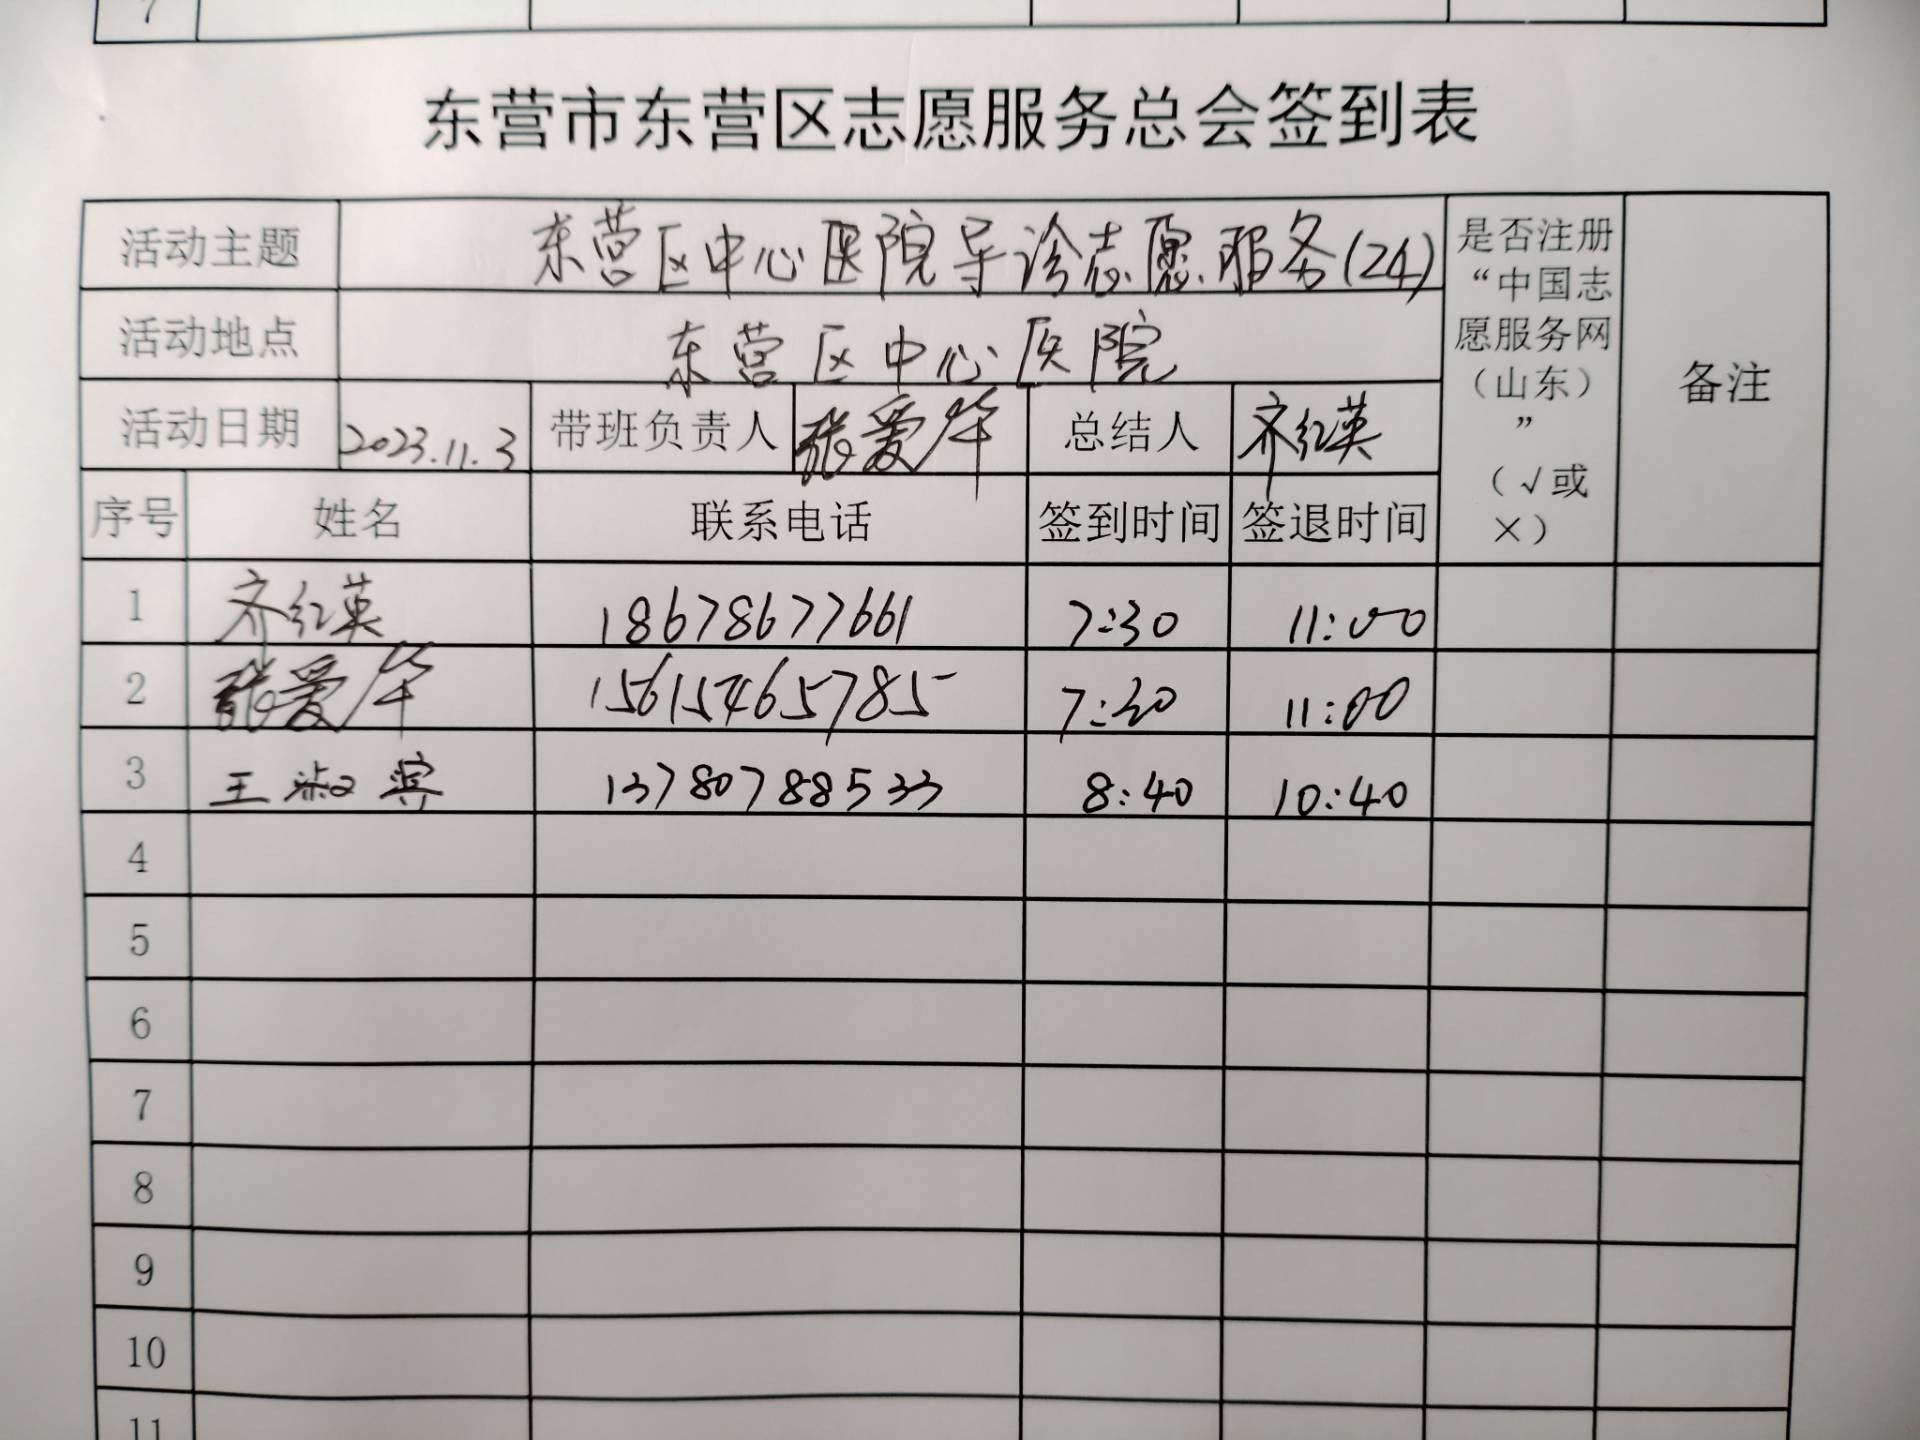 7
东营市东营区志愿服务总会签到表
活动主题 东营区中心医院导诊志愿服务(24)
是否注册
“中国志
愿服务网
（山东）
”
（√或
×）
备注
活动地点 东营区中心医院
活动日期 2023.11.3 带班负责人 张爱华 总结人 齐红英
序号 姓名 联系电话 签到时间 签退时间
1 齐红英 18678677661 7:30 11:00
2 张爱华 15615465785 7:30 11:00
3 王淑宾 13780788533 8:40 10:40
4
5
6
7
8
9
10
11